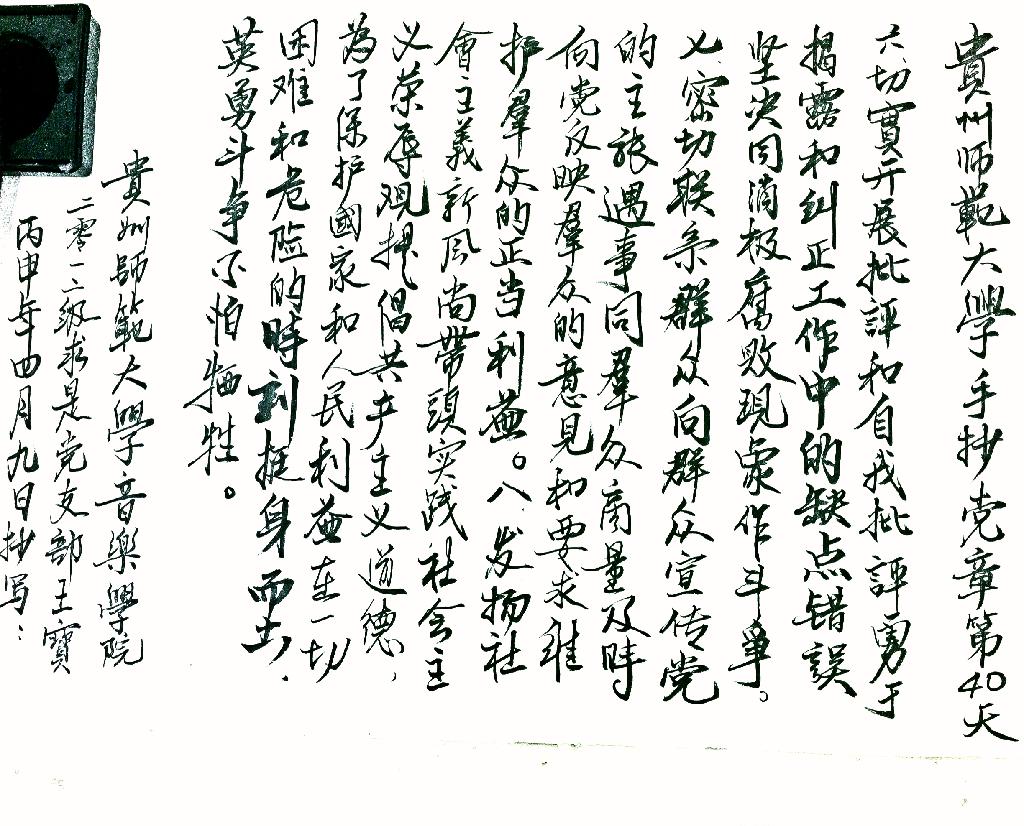 貴州师範大學手抄党章第40天
六切實开展批評和自我批評勇于
揭露和纠正工作中的缺点错误
坚决同消极腐败現象作斗爭。
七、密切联系群众向群众宣传党
的主張遇事同羣众商量及時
向党反映羣众的意見和要求維
护羣众的正当利益。八、发扬社
會主義新风尚帶頭实践社会主
义荣辱观提倡共产主义道德、
为了保护國家和人民利益在一切
困难和危险的時刻挺身而出，
英勇斗争不怕牺牲。
貴州師範大學音樂學院
二零一二级求是党支部王寶
丙申年四月九日抄写：